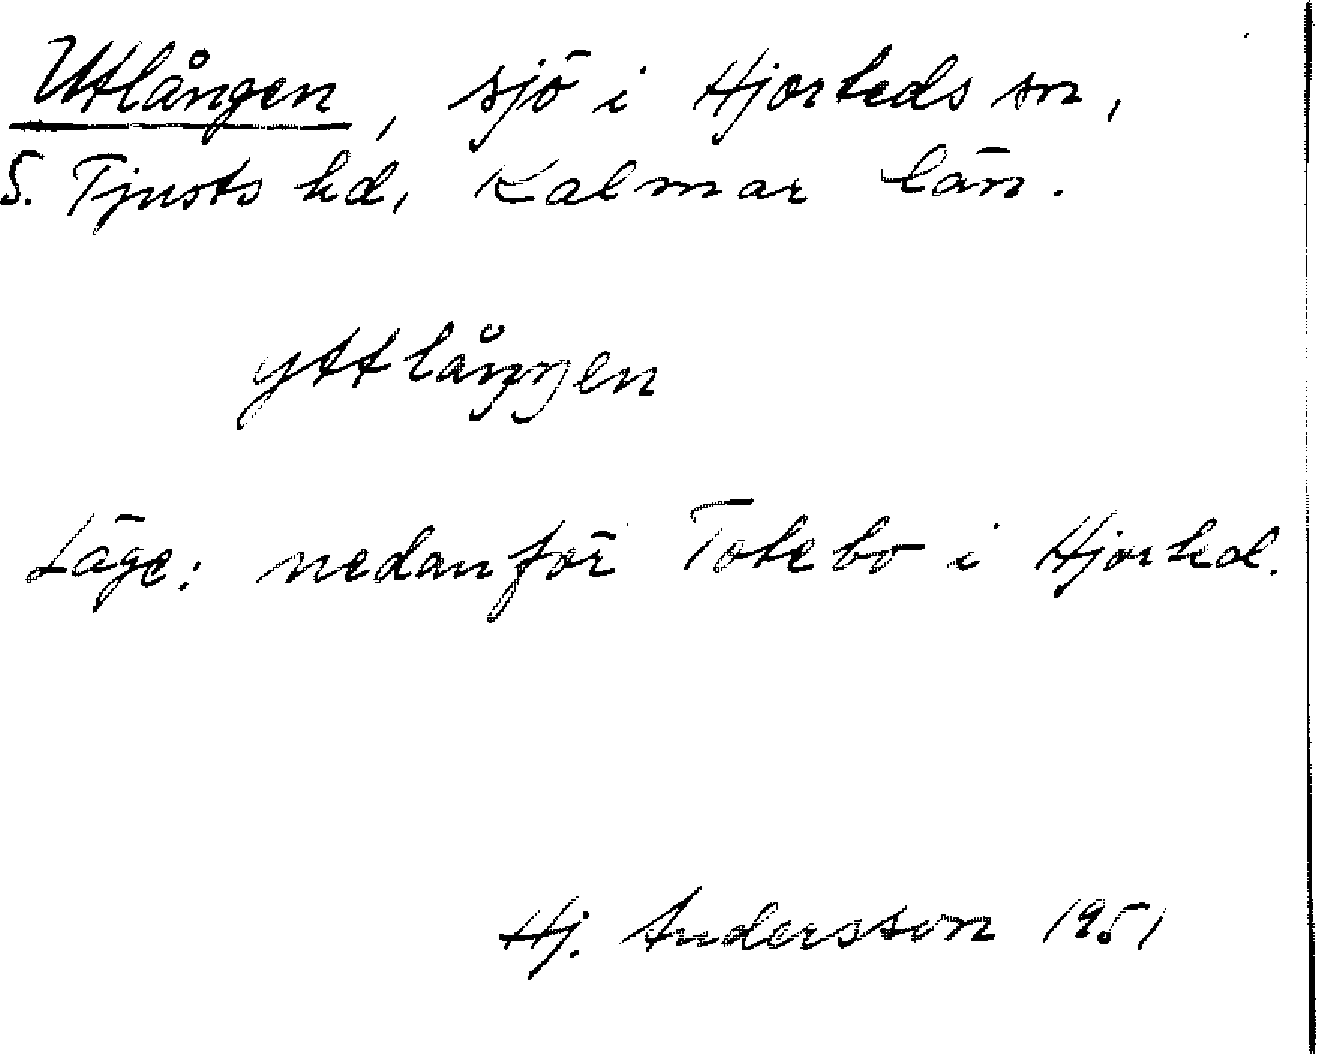 Utlången, sjö i Hjorteds sn,
S. Tjusts hd, Kalmar län.
yttlåŋŋen
Läge: nedanför Totebo i Hjorted.
Hj. Andersson 1951